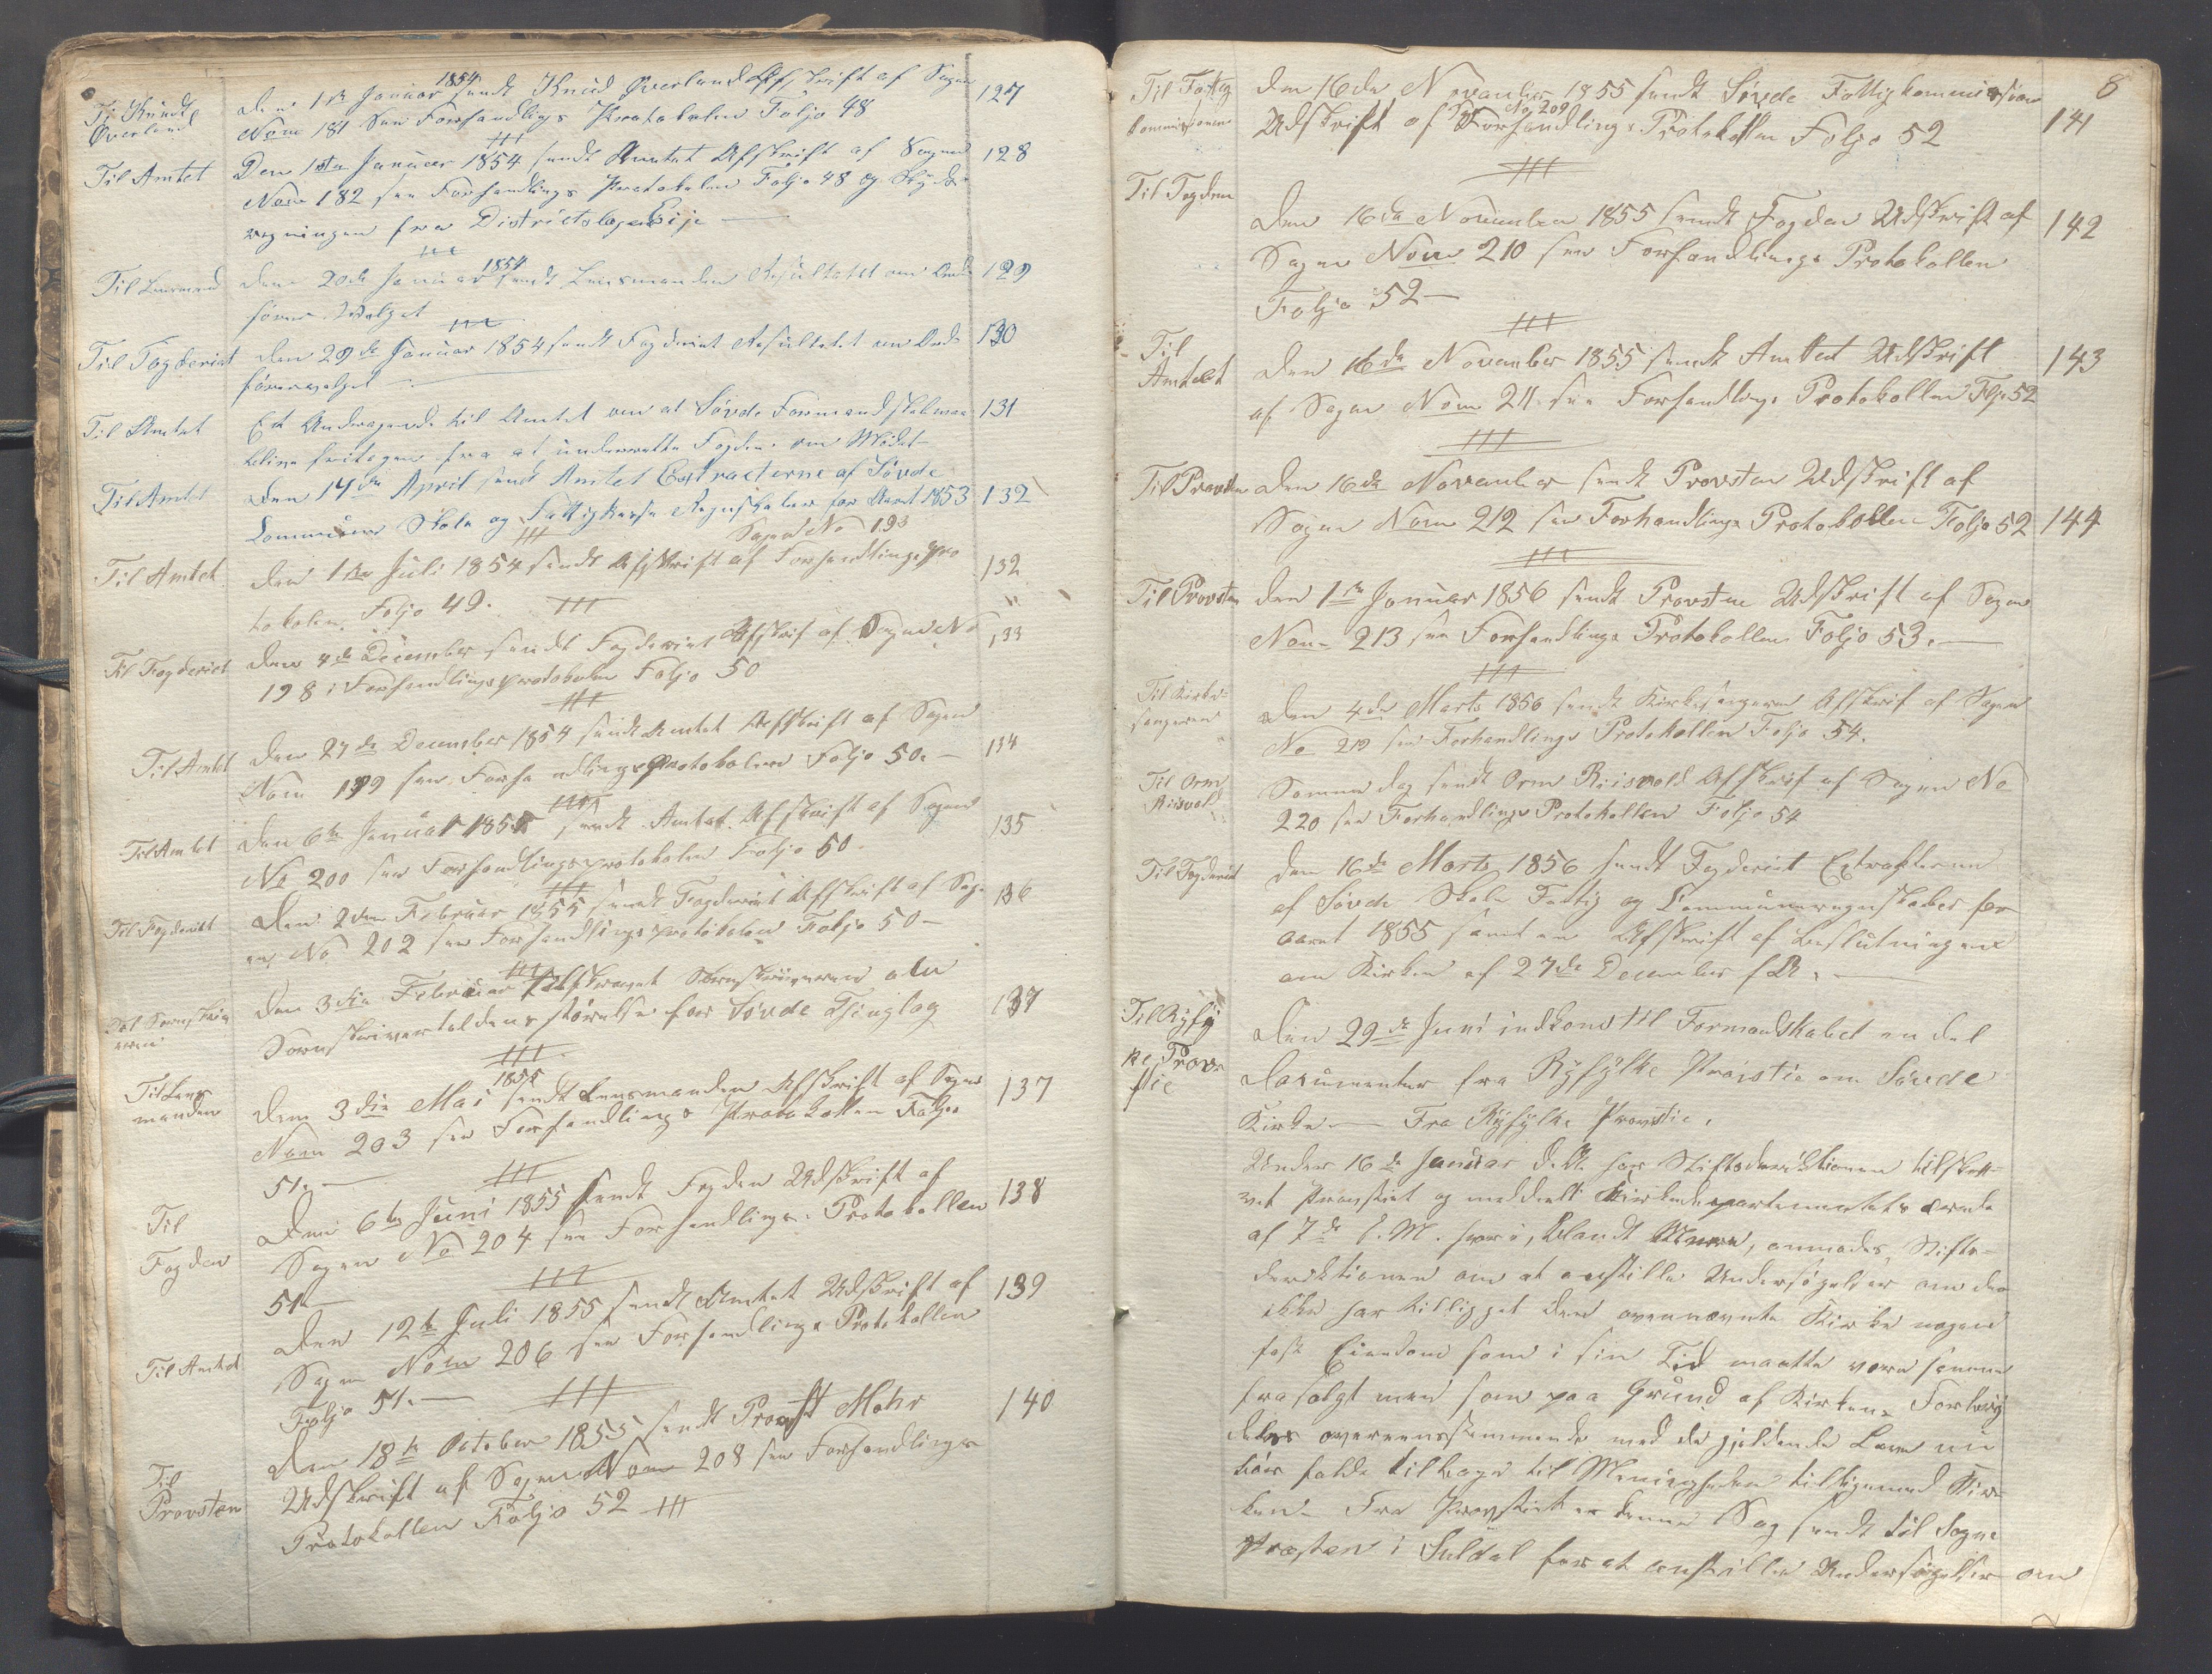 Til Knudt
Øverland
Den 1ste Januar 1854 sendt Knud Øverland Afskrift af Sagen 127
Nom 181 See Forhandlings Protokolen Foljo 48
Til Amtet
Den 1ste Januar 1854 sendt Amtet Afskrift af Sagen 128
Nom 182 see Forhandlings Protokolen Foljo 48 og Skyds
regningen fra Districtslægen
Til Lensmand
den 20de Januar 1854 sendt Lensmanden Resultatet om Ord- 129
fører Valget
Til Fogderiet
den 29de Januar 1854 sendt Fogderiet Resultatet om Ord- 130
førervalget
Til Amtet
Et Andragende til Amtet om at Søvde Formandskab maa 131
blive fritagen fra at underrette Fogden om Mødet
Til Amtet
den 14de April sendt Amtet Extracterne af Søvde
Commune Skole og Fattigkasse Regnskaber for Aaret 1853 132
Sagen No 193
Til Amtet
den 1ste Juli 1854 sendt Afskrift af Forhandlings Pro 132
tokolen Foljo 49.
Til Fogderiet
den 4de December sendt Fogderiet Afskrift af Sagen No 133
198 i Forhandlingsprotokolen Foljo 50
Til Amtet
den 27de December 1854 sendt Amtet Afskrift af Sagen
Nom 199 see Forhandlingsprotokolen Foljo 50. 134
Til Amtet
den 6te Januar 1855 sendt Amtet Afskrift af Sagen
No 200 see Forhandlingsprotokolen Foljo 50. 135
Til Fogderiet
Den 2den Februar 1855 sendt Fogderiet Afskrift af Sag- 136
en No 202 see Forhandlingsprotokolen Foljo 50
Til Sornskriv
eren
den 3die Februar Sornskriveren
Sornskrivertoldens størrelse for Søvde Thinglag 137
Til Lens
manden
den 3die Mai 1855 sendt Lensmanden Afskrift af Sagen 137
Nom 203 see Forhandlings Protokollen Foljo
51.
Til
Fogden
den 6te Juni 1855 sendt Fogden Udskrift af
Sagen No 204 see Forhandlings Protokollen 138
51
Til Amtet
den 12te Juli 1855 sendt Amtet Udskrift af 139
Sagen Nom 206 see Forhandlings Protokollen
Foljo 51.
Til
Provsten
den 18te October 1855 sendt Provst Mohr 140
Udskrift af Sagen Nom 208 see Forhandlings
Protokollen Foljo 52
8
Til Fattig
kommisionen
den 16de November 1855 sendt Søvde Fattigkommission
Udskrift af Sag No 209 Forhandlings Protokollen Foljo 52 141
Til Fogden
den 16de November 1855 sendt Fogden Udskrift af 142
Sagen Nom 210 see Forhandlings Protokollen
Foljo 52
Til
Amtet
den 16de November 1855 sendt Amtet Udskrift 143
af Sagen Nom 211 see Forhandlings Protokollen Foljo 52
Til Provsten
den 16de November sendt Provsten Udskrift af
Sagen Nom 212 see Forhandlings Protokollen Foljo 52 144
Til Provsten
den 1ste Januar 1856 sendt Provsten Udskrift af Sagen
Nom 213 see Forhandlings Protokollen Foljo 53.
Til Kirke-
sangeren
den 4de Marts 1856 sendt Kirkesangeren Afskrif af Sagen
No 219 see Forhandlings Protokollen Foljo 54.
Til Orm
Riisvold
Samme dag sendt Orm Riisvold Afskrif af Sagen No
220 see Forhandlings Protokollen Foljo 54
Til Fogderiet
den 16de Marts 1856 sendt Fogderiet Extrakterne
af Søvde Skole Fattig og Communeregnskaber for
aaret 1855 samt en Afskrift af Beslutningen
om Kirken af 27de December f. A.
Til Ryfy
ke Prov
stie
Den 29de Juni indkom til Formandskabet en del
Documenter fra Ryfylke Provstie om Søvde
Kirke Fra Ryfylke Provstie.
Under 16de Januar d. A. har Stiftsdirektionen tilskre-
vet Provstiet og meddeelt Kirkedepartementets
af 7de s. M. hvori, blandt Mere, anmodes Stifts-
direktionen om at anstille Undersøgelser om der
ikke har tilligget den ovennævnte Kirke nogen
fast Eiendom som i sin Tid maatte være samme
frasolgt men som paa Grund af Kirkens
overeensstemmende med de gjeldende Love
falde tilbage til Menigheden tilligemed Kir-
ken. Fra Provstiet er denne Sag sendt til Sogne
Præsten i Suldal for at anstille Undersøgelser om